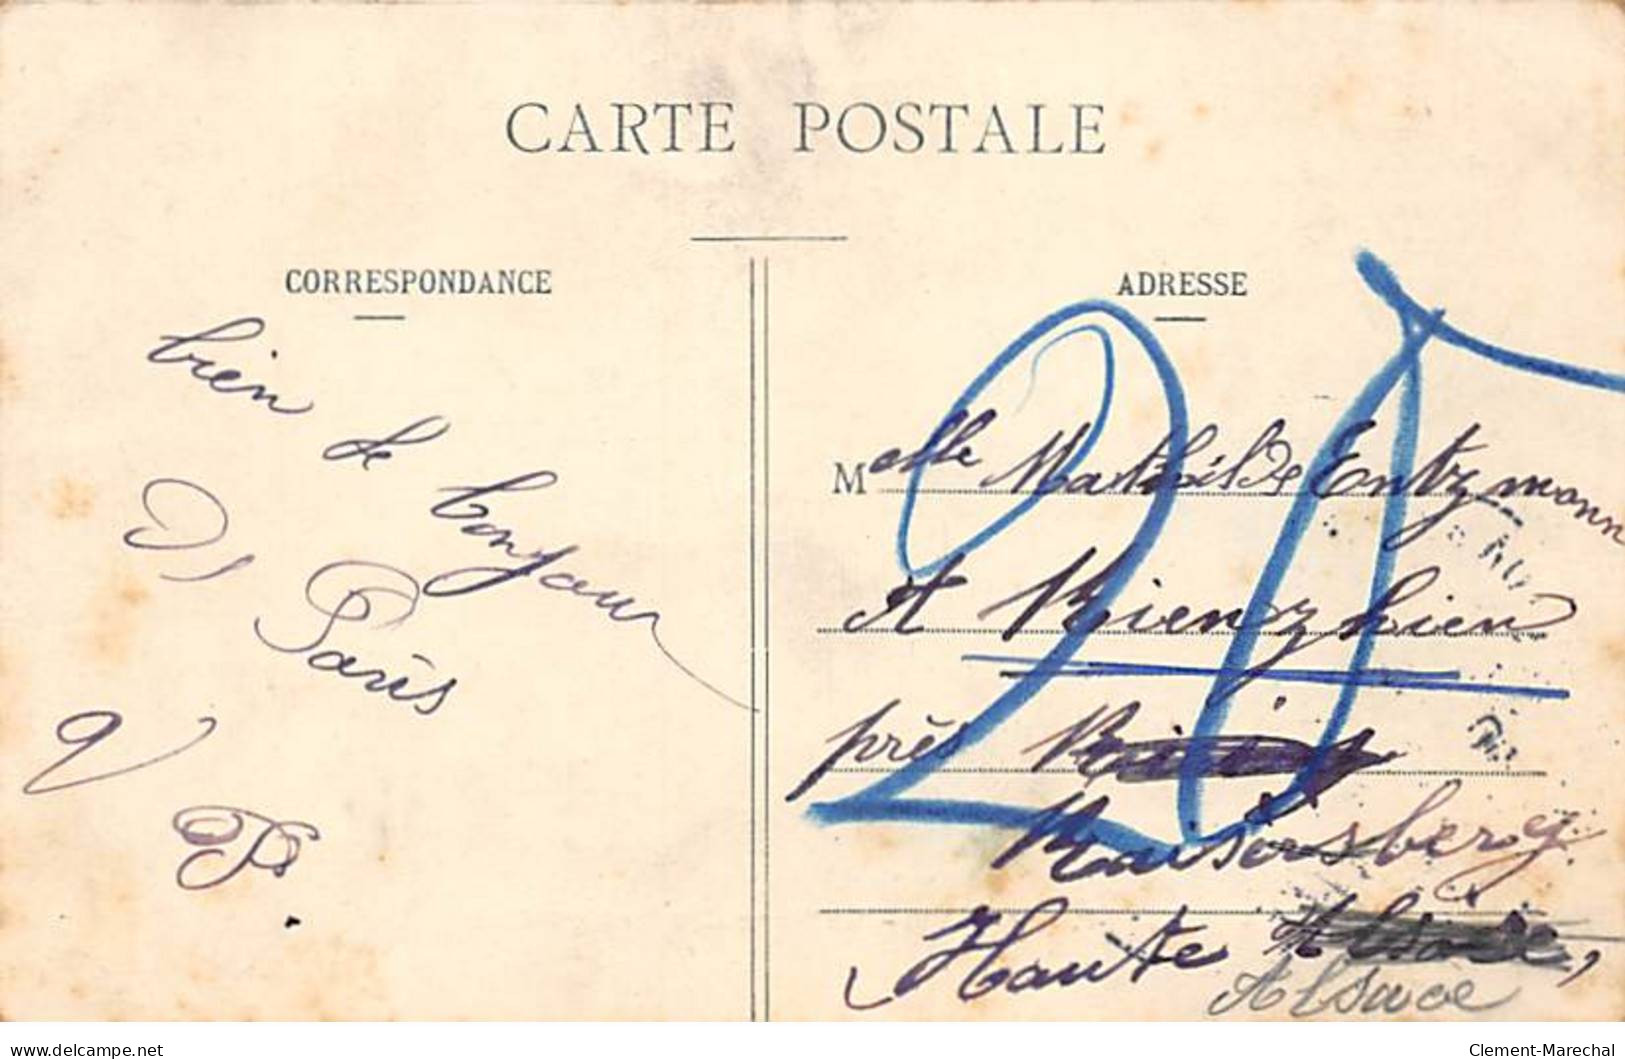 CARTE POSTALE
CORRESPONDANCE
bien le bonjour
De Paris
ADRESSE
Melle Mathilde Entzmann
A Kienzhien
près
Kaisersberg
Haute Alsace,
Alsace
20
delcampe.net
Clement-Marechal